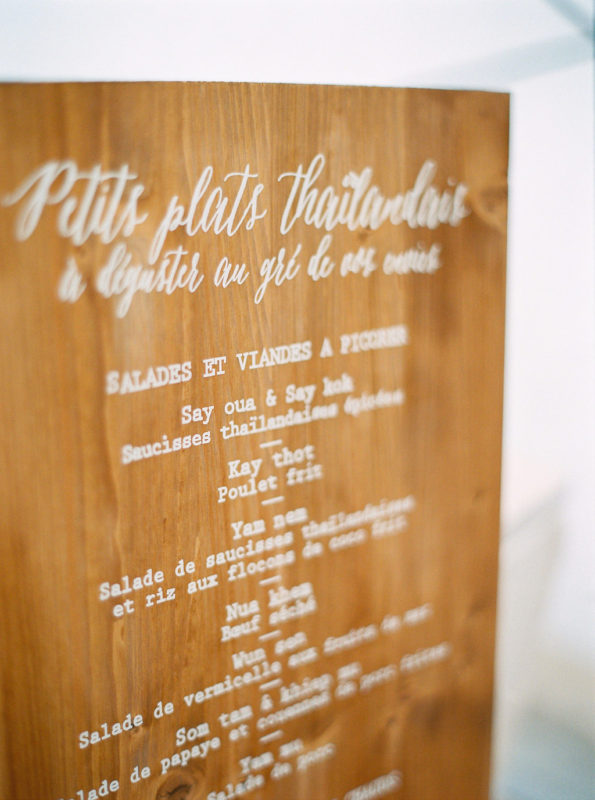 Petits plats thaïlandais
à déguster au gré de vos envies
SALADES ET VIANDES A PICORER
Say oua & Say koh
Saucisses thaïlandaises épicées
Kay thot
Poulet frit
Yam nem
Salade de saucisses thaïlandaises
et riz aux flocons de coco frit
Nua khem
Bœuf séché
Wun sen
Salade de vermicelle aux fruits de mer
Som tam & khiep mu
Salade de papaye et couennes de porc frites
Yam mu
Salade de porc